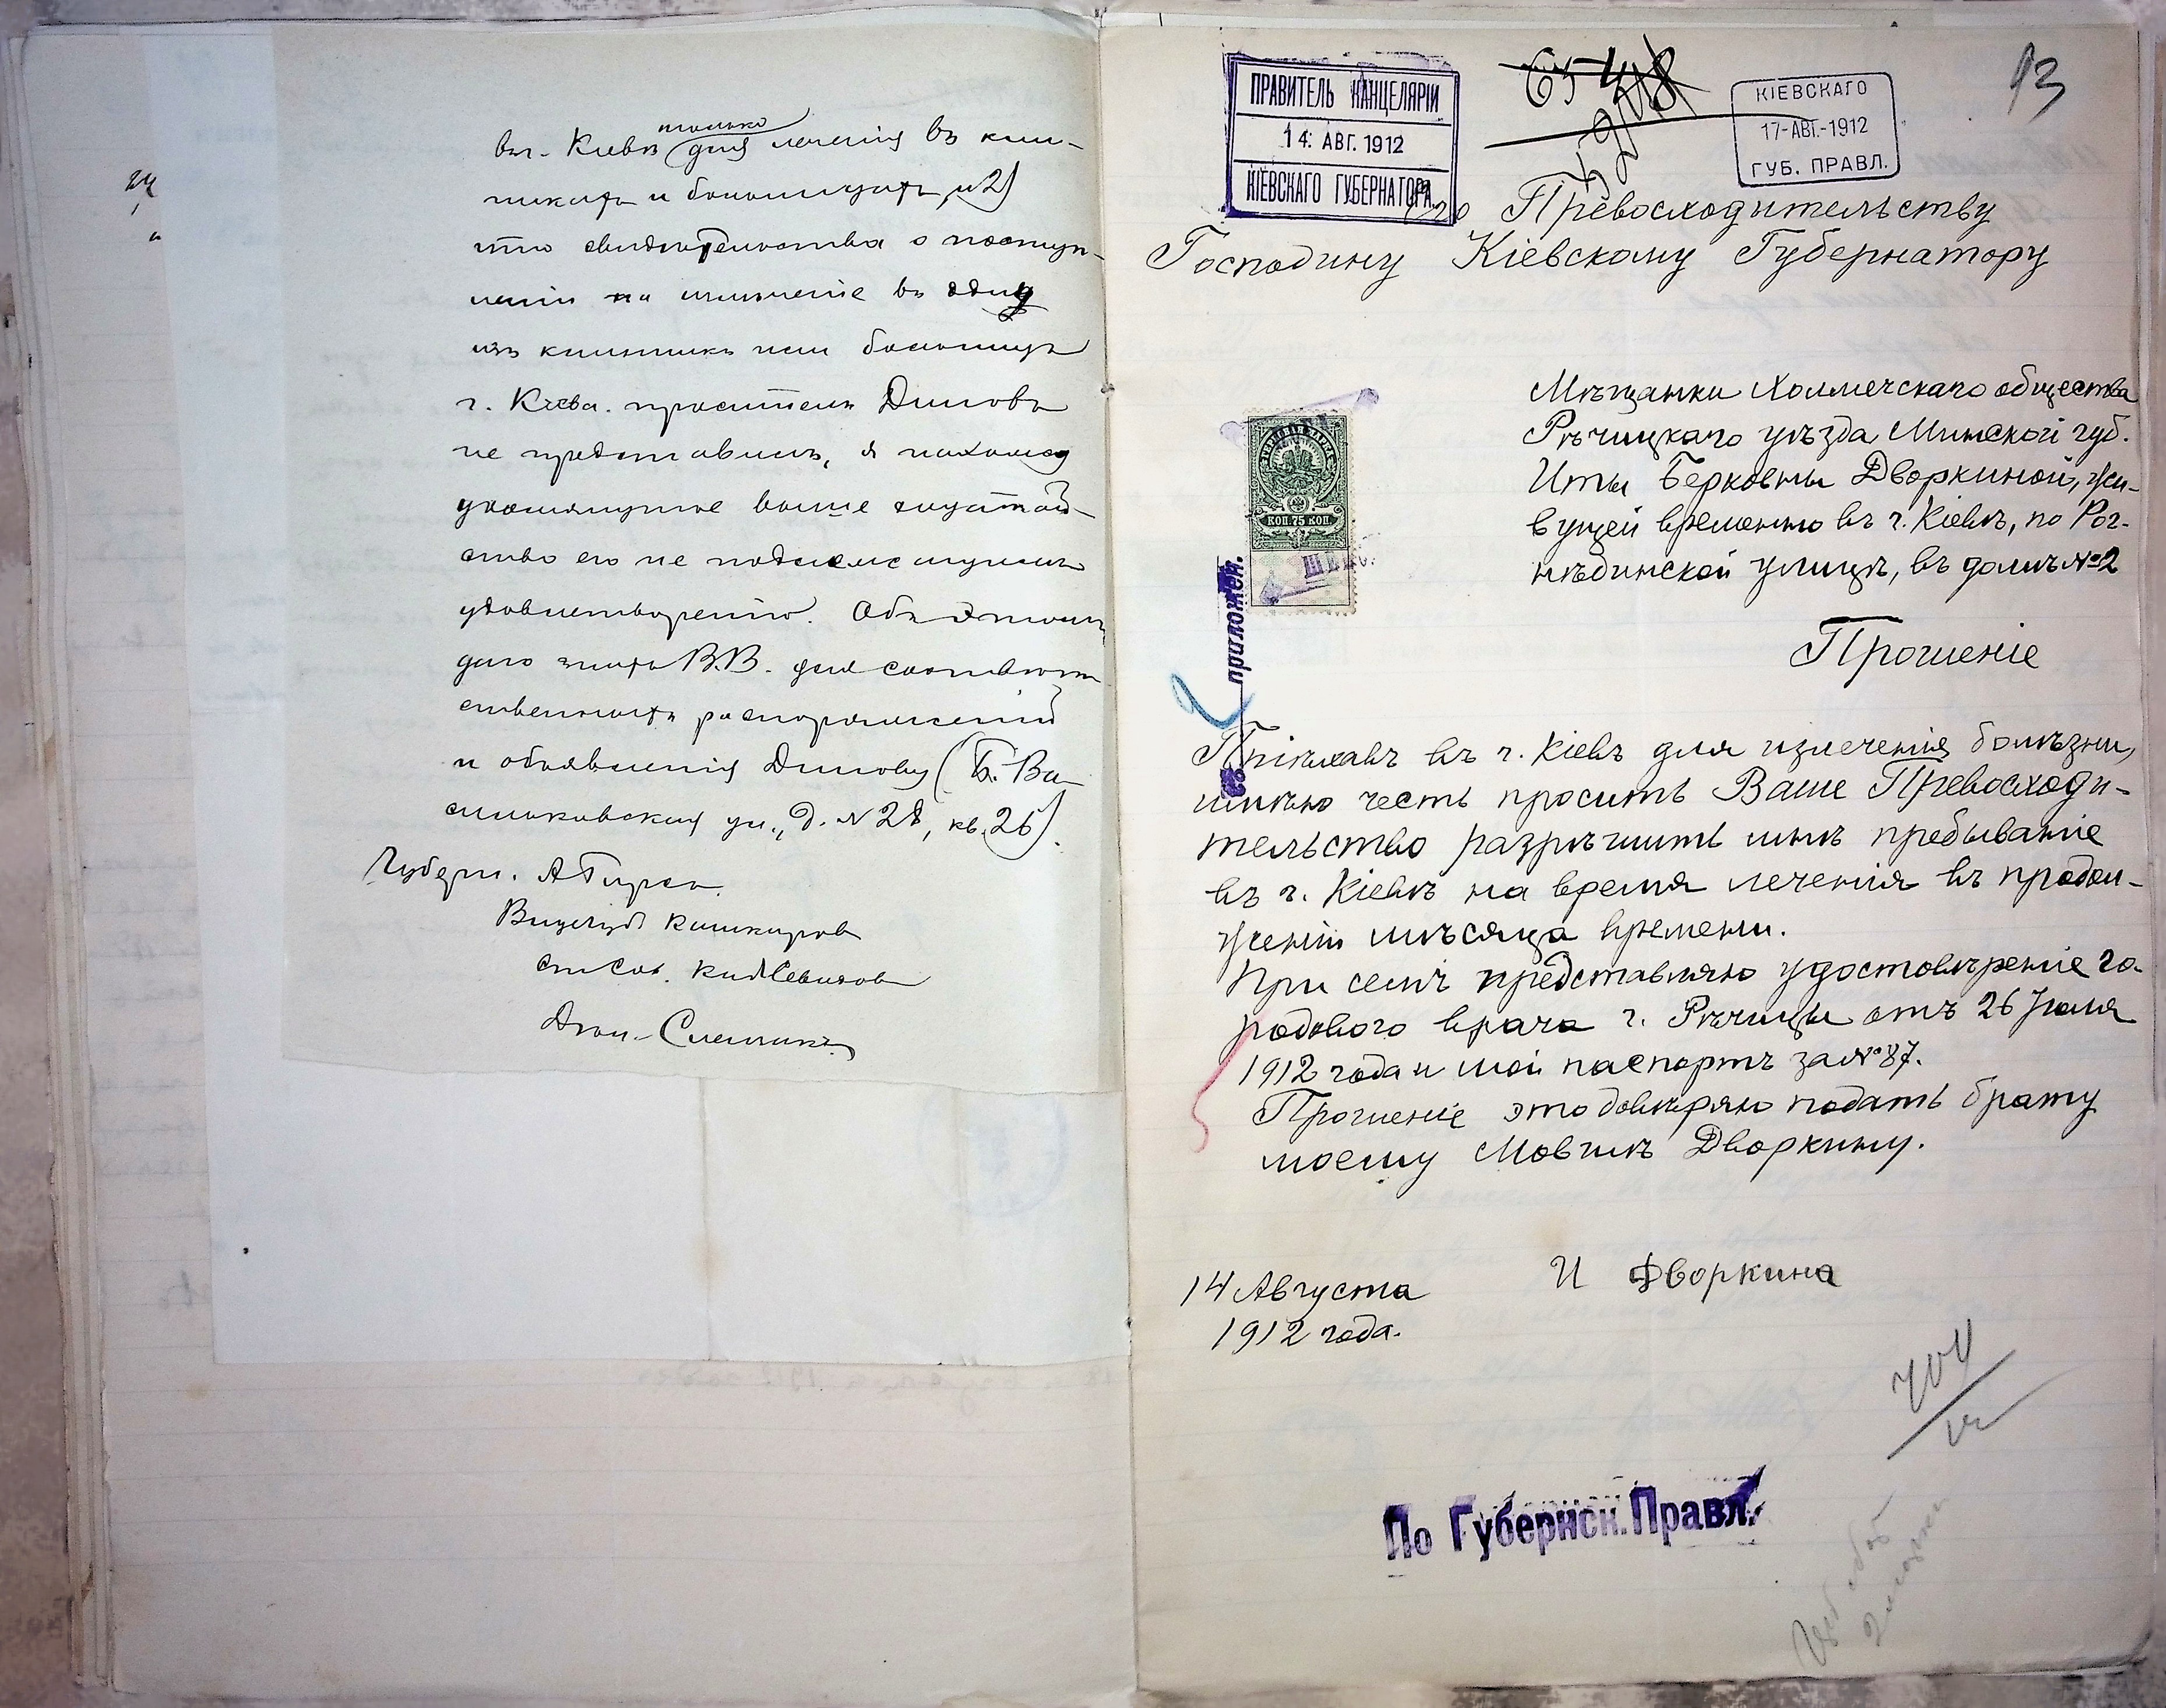 только
въ г. Кіевѣ для леченія въ кли-
никахъ и больницахъ, и 2)
что свидѣтельства о поступ-
леніи на излѣченіе въ одну
изъ клиникъ или больницъ
г. Кіева проситель Дымовъ
не представилъ, я нахожу
упомянутое выше ходатай-
ство его не подлежащимъ
удовлетворенію. Объ этомъ
даю знать В.В. для соотвѣт-
ственныхъ распоряженій
и объявленія Дымову (Б.-Ва-
сильковская ул., д. № 28, кв. 26).
Губерн. А Гирсъ
Вицегуб Кашкаровъ
ст Сов.
ПРАВИТЕЛЬ КАНЦЕЛЯРІИ
14. АВГ. 1912
КІЕВСКАГО ГУБЕРНАТОРА
КІЕВСКАГО
17-АВГ.-1912
ГУБ. ПРАВЛ.
93
Его Превосходительству
Господину Кіевскому Губернатору
КОП. 75 КОП
Мѣщанки Холмечскаго общества
Рѣчицкаго уѣзда, Минской губ.
Иты Берковны Дворкиной, жи-
вущей временно въ г. Кіевѣ, по Рог-
нѣдинской улицѣ, въ домѣ №2
съ приложен.
Прошеніе
Пріѣхавъ въ г. Кіевъ для излеченія болѣзни,
имѣю честь просить Ваше Превосходи-
тельство разрѣшить мнѣ пребываніе
въ г. Кіевѣ на время леченія въ продол-
женіи мѣсяца времени.
При семъ представляю удостовѣреніе го-
родового врача г. Рѣчицы отъ 26 Іюля
1912 года и мой паспортъ за №87.
Прошеніе это довѣряю подать брату
моему Мовшѣ Дворкину.
И Дворкина
14 Августа
1912 года.
По Губернск. Правл.